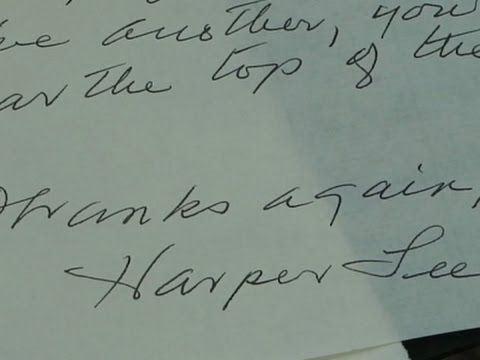 another, you
the top of the
Thanks again,
Harper Lee